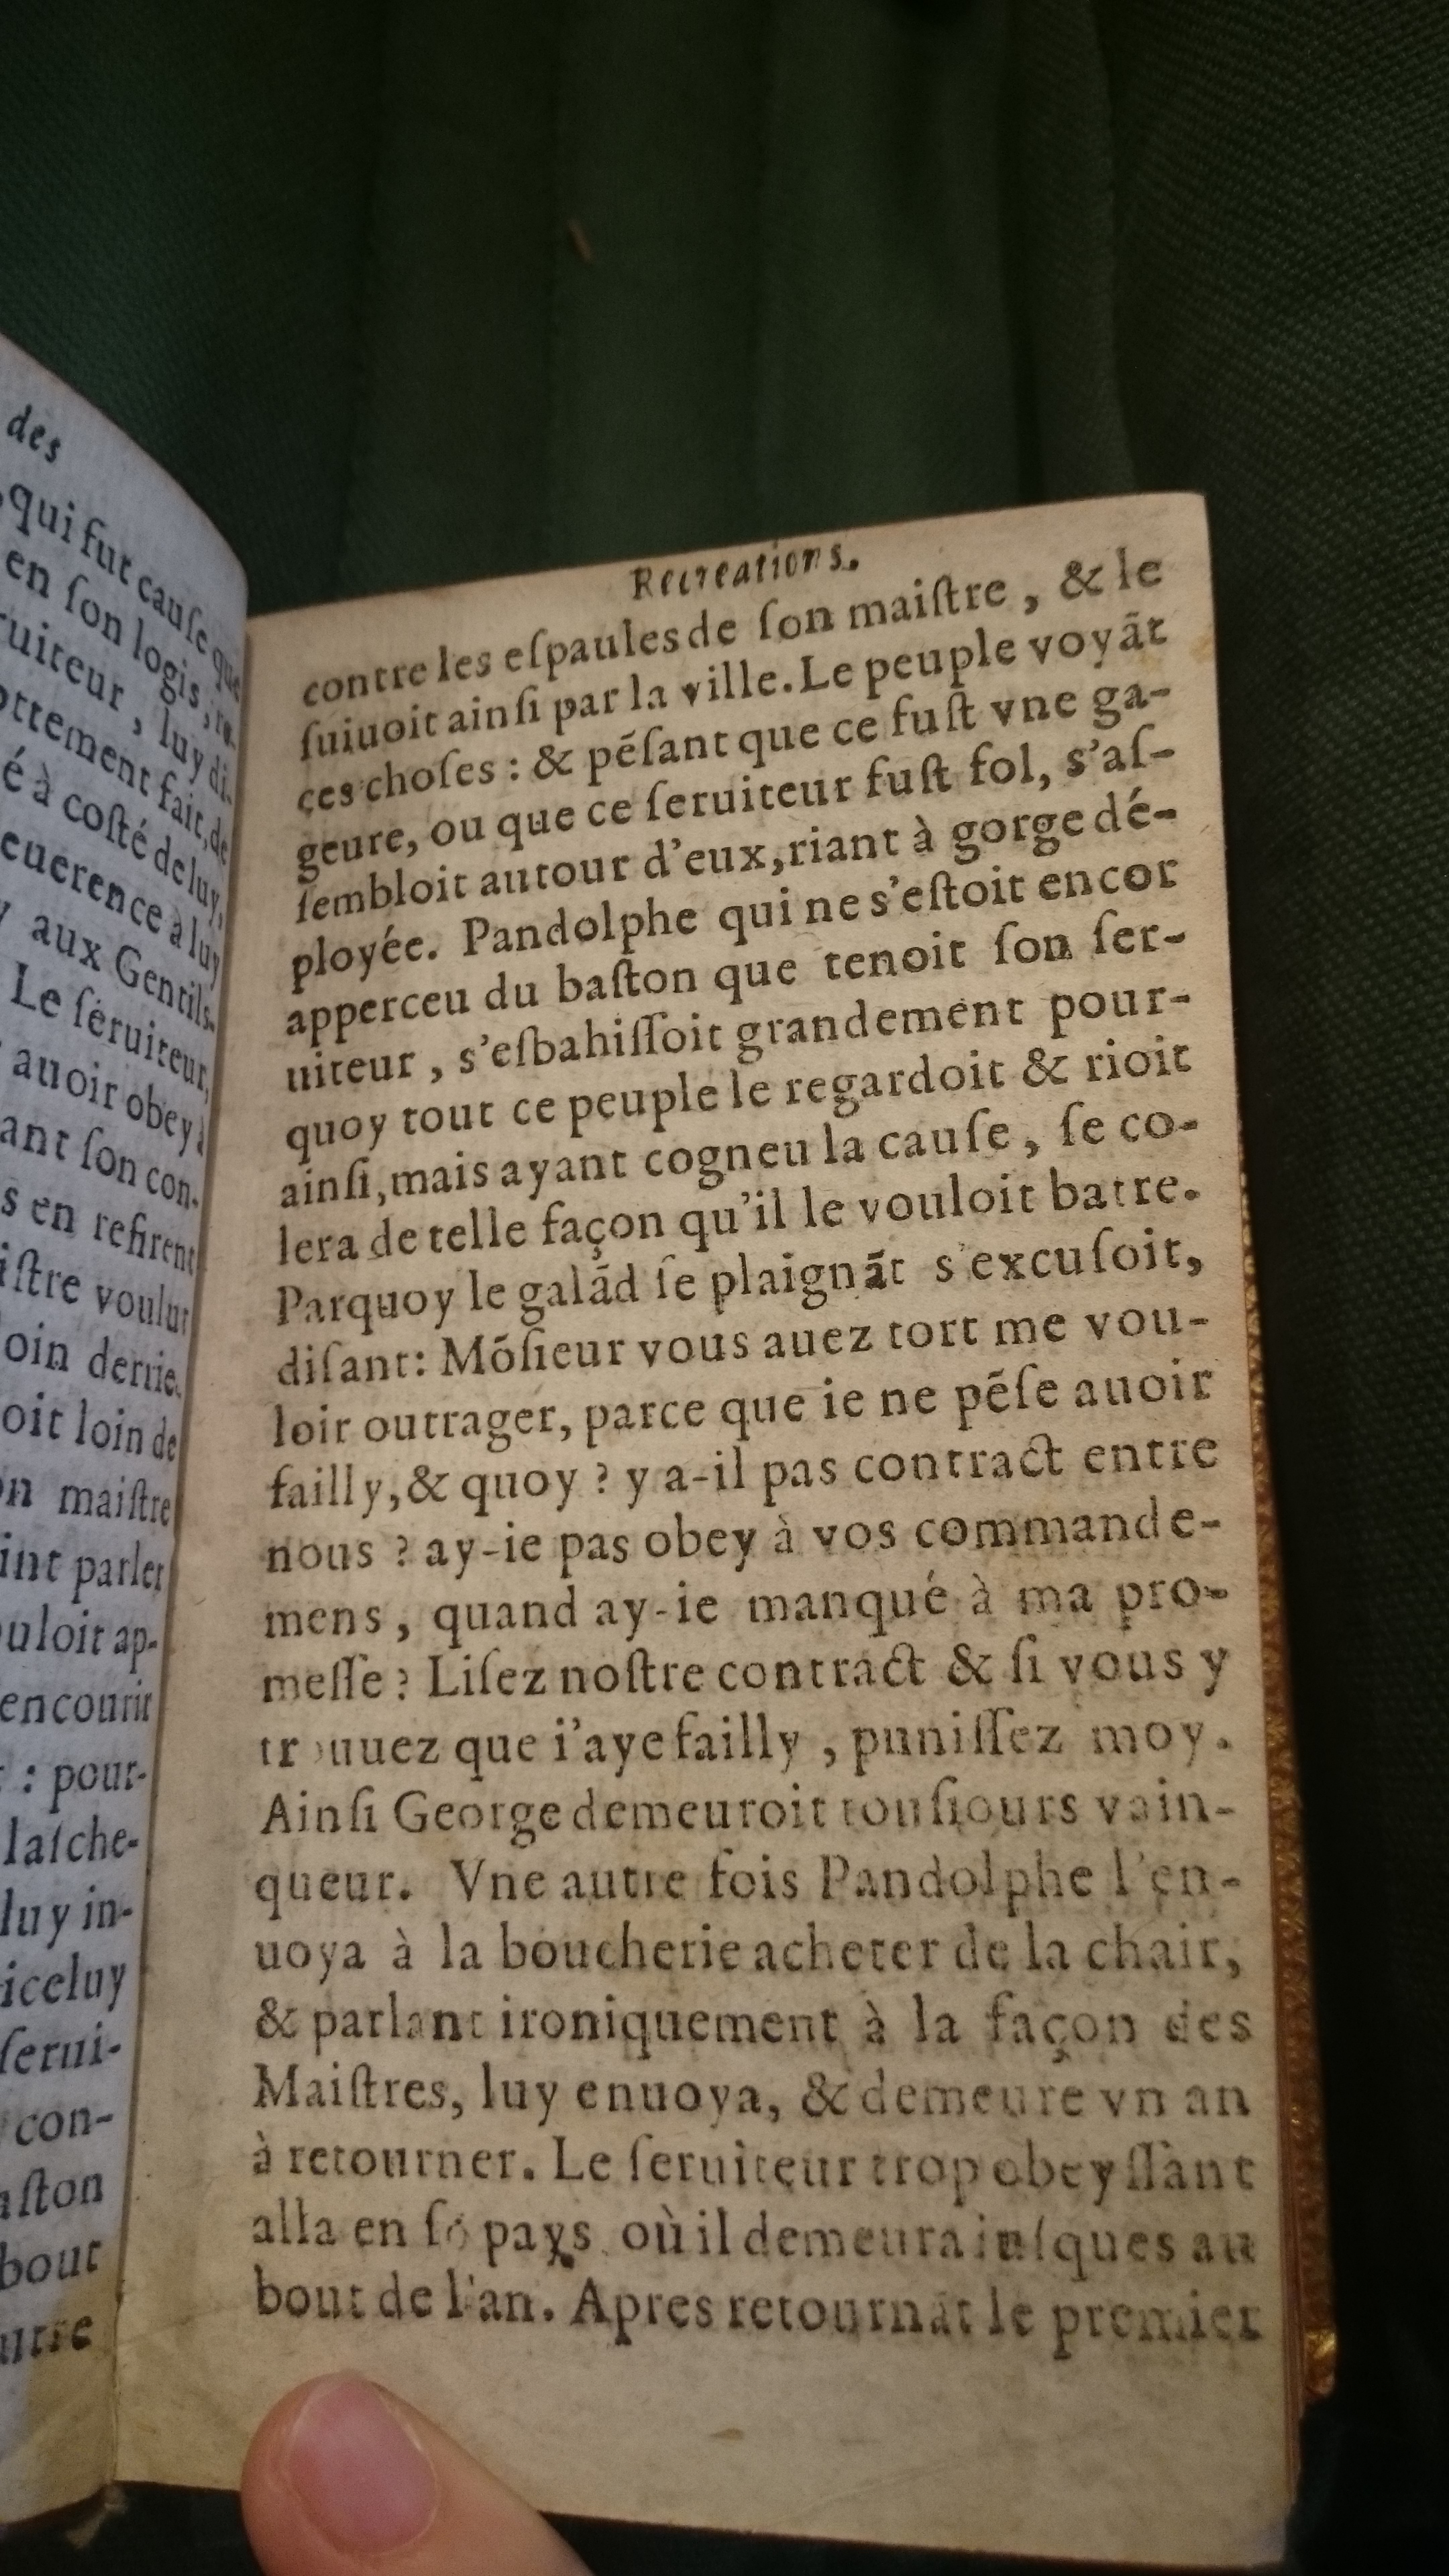 des
qui fut cauſe que
en ſon logis,
ruiteur, luy di-
ottement fait, de
é à coſté de luy,
euerence à luy
y aux Gentils-
Le ſeruiteur,
auoir obey à
ant ſon con-
s en refirent
iſtre voulut
oin derrie-
oit loin de
on maiſtre
int parler
ouloit ap-
encourir
: pour-
laſche-
luy in-
iceluy
ſerui-
con-
aſton
bout
utre
Recreations.
contre les eſpaules de ſon maiſtre, & le
ſuiuoit ainſi par la ville. Le peuple voyāt
ces choſes : & pēſant que ce fuſt vne ga-
geure, ou que ce ſeruiteur fuſt fol, s'aſ-
ſembloit autour d'eux, riant à gorge dé-
ployée. Pandolphe qui ne s'eſtoit encor
apperceu du baſton que tenoit ſon ſer-
uiteur, s'eſbahiſſoit grandement pour-
quoy tout ce peuple le regardoit & rioit
ainſi, mais ayant cogneu la cauſe, ſe co-
lera de telle façon qu'il le vouloit batre.
Parquoy le galād ſe plaignāt s'excuſoit,
diſant: Mōſieur vous auez tort me vou-
loir outrager, parce que ie ne pēſe auoir
failly, & quoy ? y a-il pas contract entre
nous ? ay-ie pas obey à vos commande-
mens, quand ay-ie manqué à ma pro-
meſſe ? Liſez noſtre contract & ſi vous y
trouuez que i'aye failly, puniſſez moy.
Ainſi George demeuroit touſiours vain-
queur. Vne autre fois Pandolphe l'en-
uoya à la boucherie acheter de la chair,
& parlant ironiquement à la façon des
Maiſtres, luy enuoya, & demeure vn an
à retourner. Le ſeruiteur trop obeyſſant
alla en ſō pays où il demeura iuſques au
bout de l'an. Apres retournāt le premier